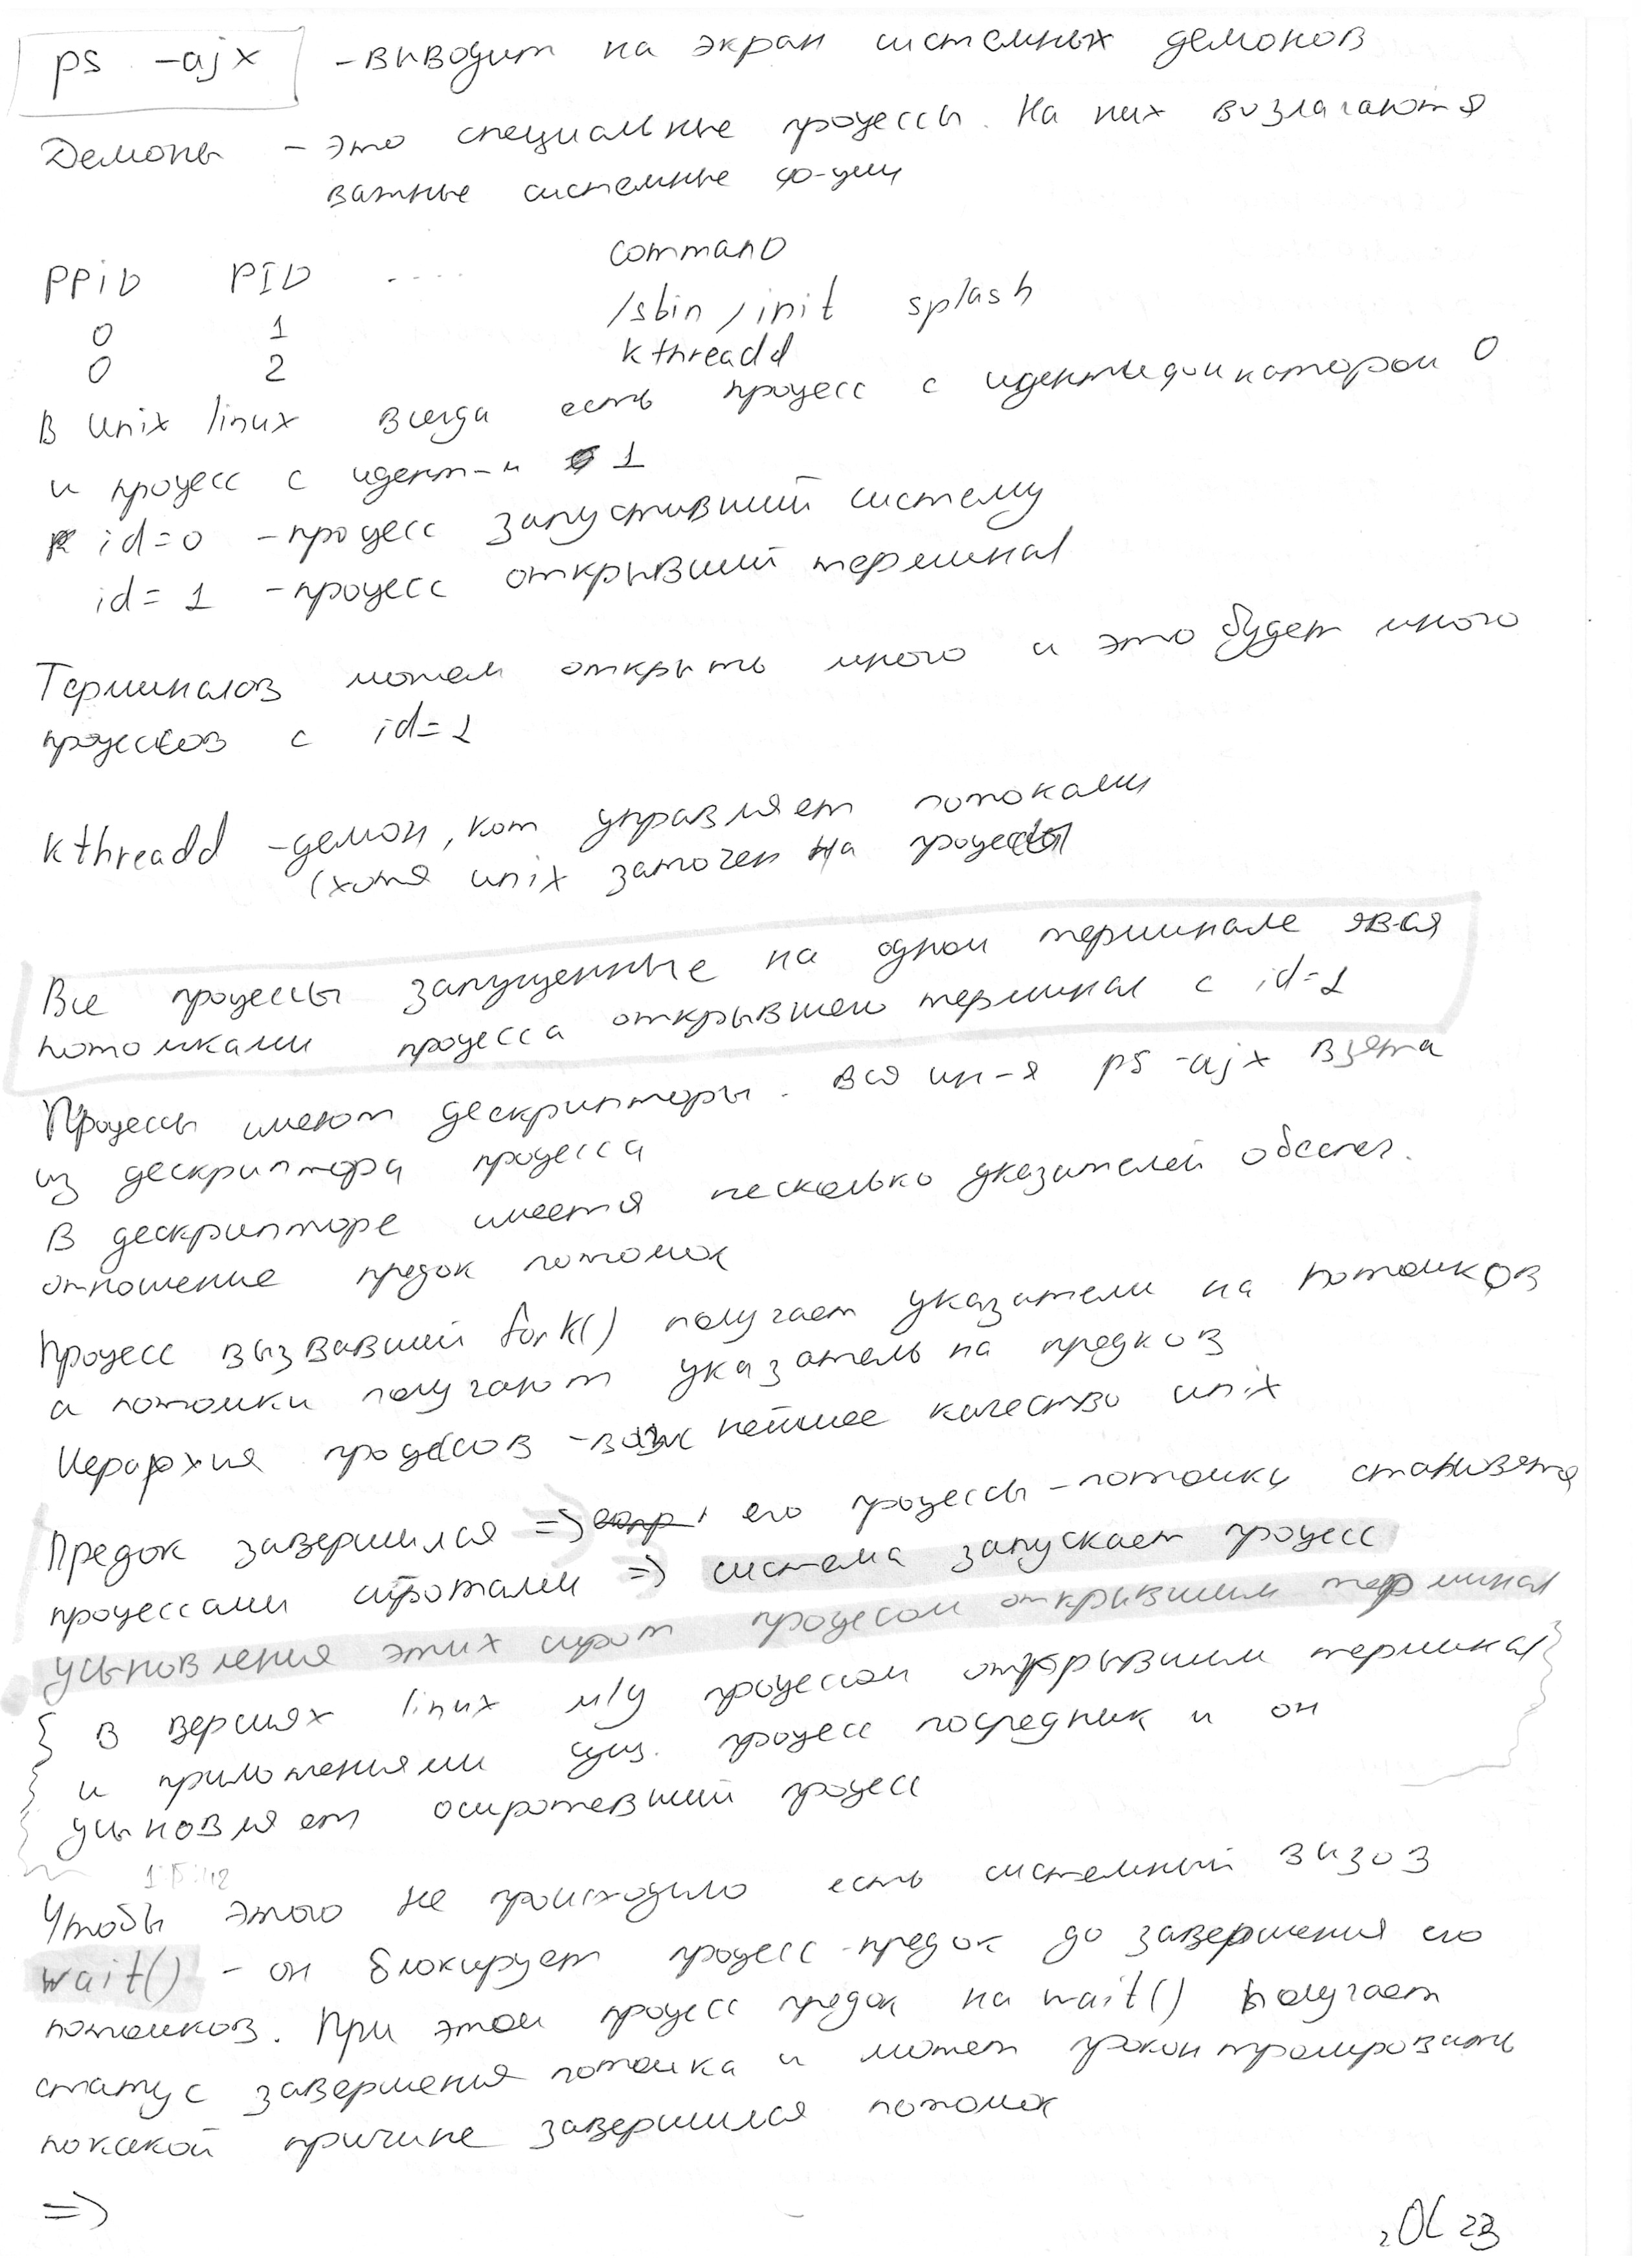 ps -ajx - выводит на экран системных демонов
Демоны - это специальные процессы. На них возлагаются
важные системные ф-ции
PPID PID .... command
0 1 /sbin/init splash
0 2 kthreadd
В Unix linux всегда есть процесс с идентификатором 0
и процесс с идент-м 1
id=0 - процесс запустивший систему
id=1 - процесс открывший терминал
Терминалов можем открыть много и это будет много
процессов с id=1
kthreadd - демон, кот управляет потоками
(хотя unix заточен на процессы)
Все процессы запущенные на одном терминале яв-ся
потомками процесса открывшего терминал с id=1
Процессы имеют дескрипторы. Вся ин-я ps -ajx взята
из дескриптора процесса
В дескрипторе имеется несколько указателей обеспеч.
отношение предок потомок
Процесс вызвавший fork() получает указатели на потомков
а потомки получают указатель на предков
Иерархия процессов - важнейшее качество unix
Предок завершился => его процессы-потомки становятся
процессами сиротами => система запускает процесс
усыновления этих сирот процессом открывшим терминал
{ в версиях linux м/у процессом открывшим терминал }
и приложениями сущ. процесс посредник и он
усыновляет осиротевший процесс
Чтобы этого не происходило есть системный вызов
wait() - он блокирует процесс-предок до завершения его
потомков. При этом процесс предок на wait() получает
статус завершения потомка и может проконтролировать
по какой причине завершился потомок
=>
ОС 23